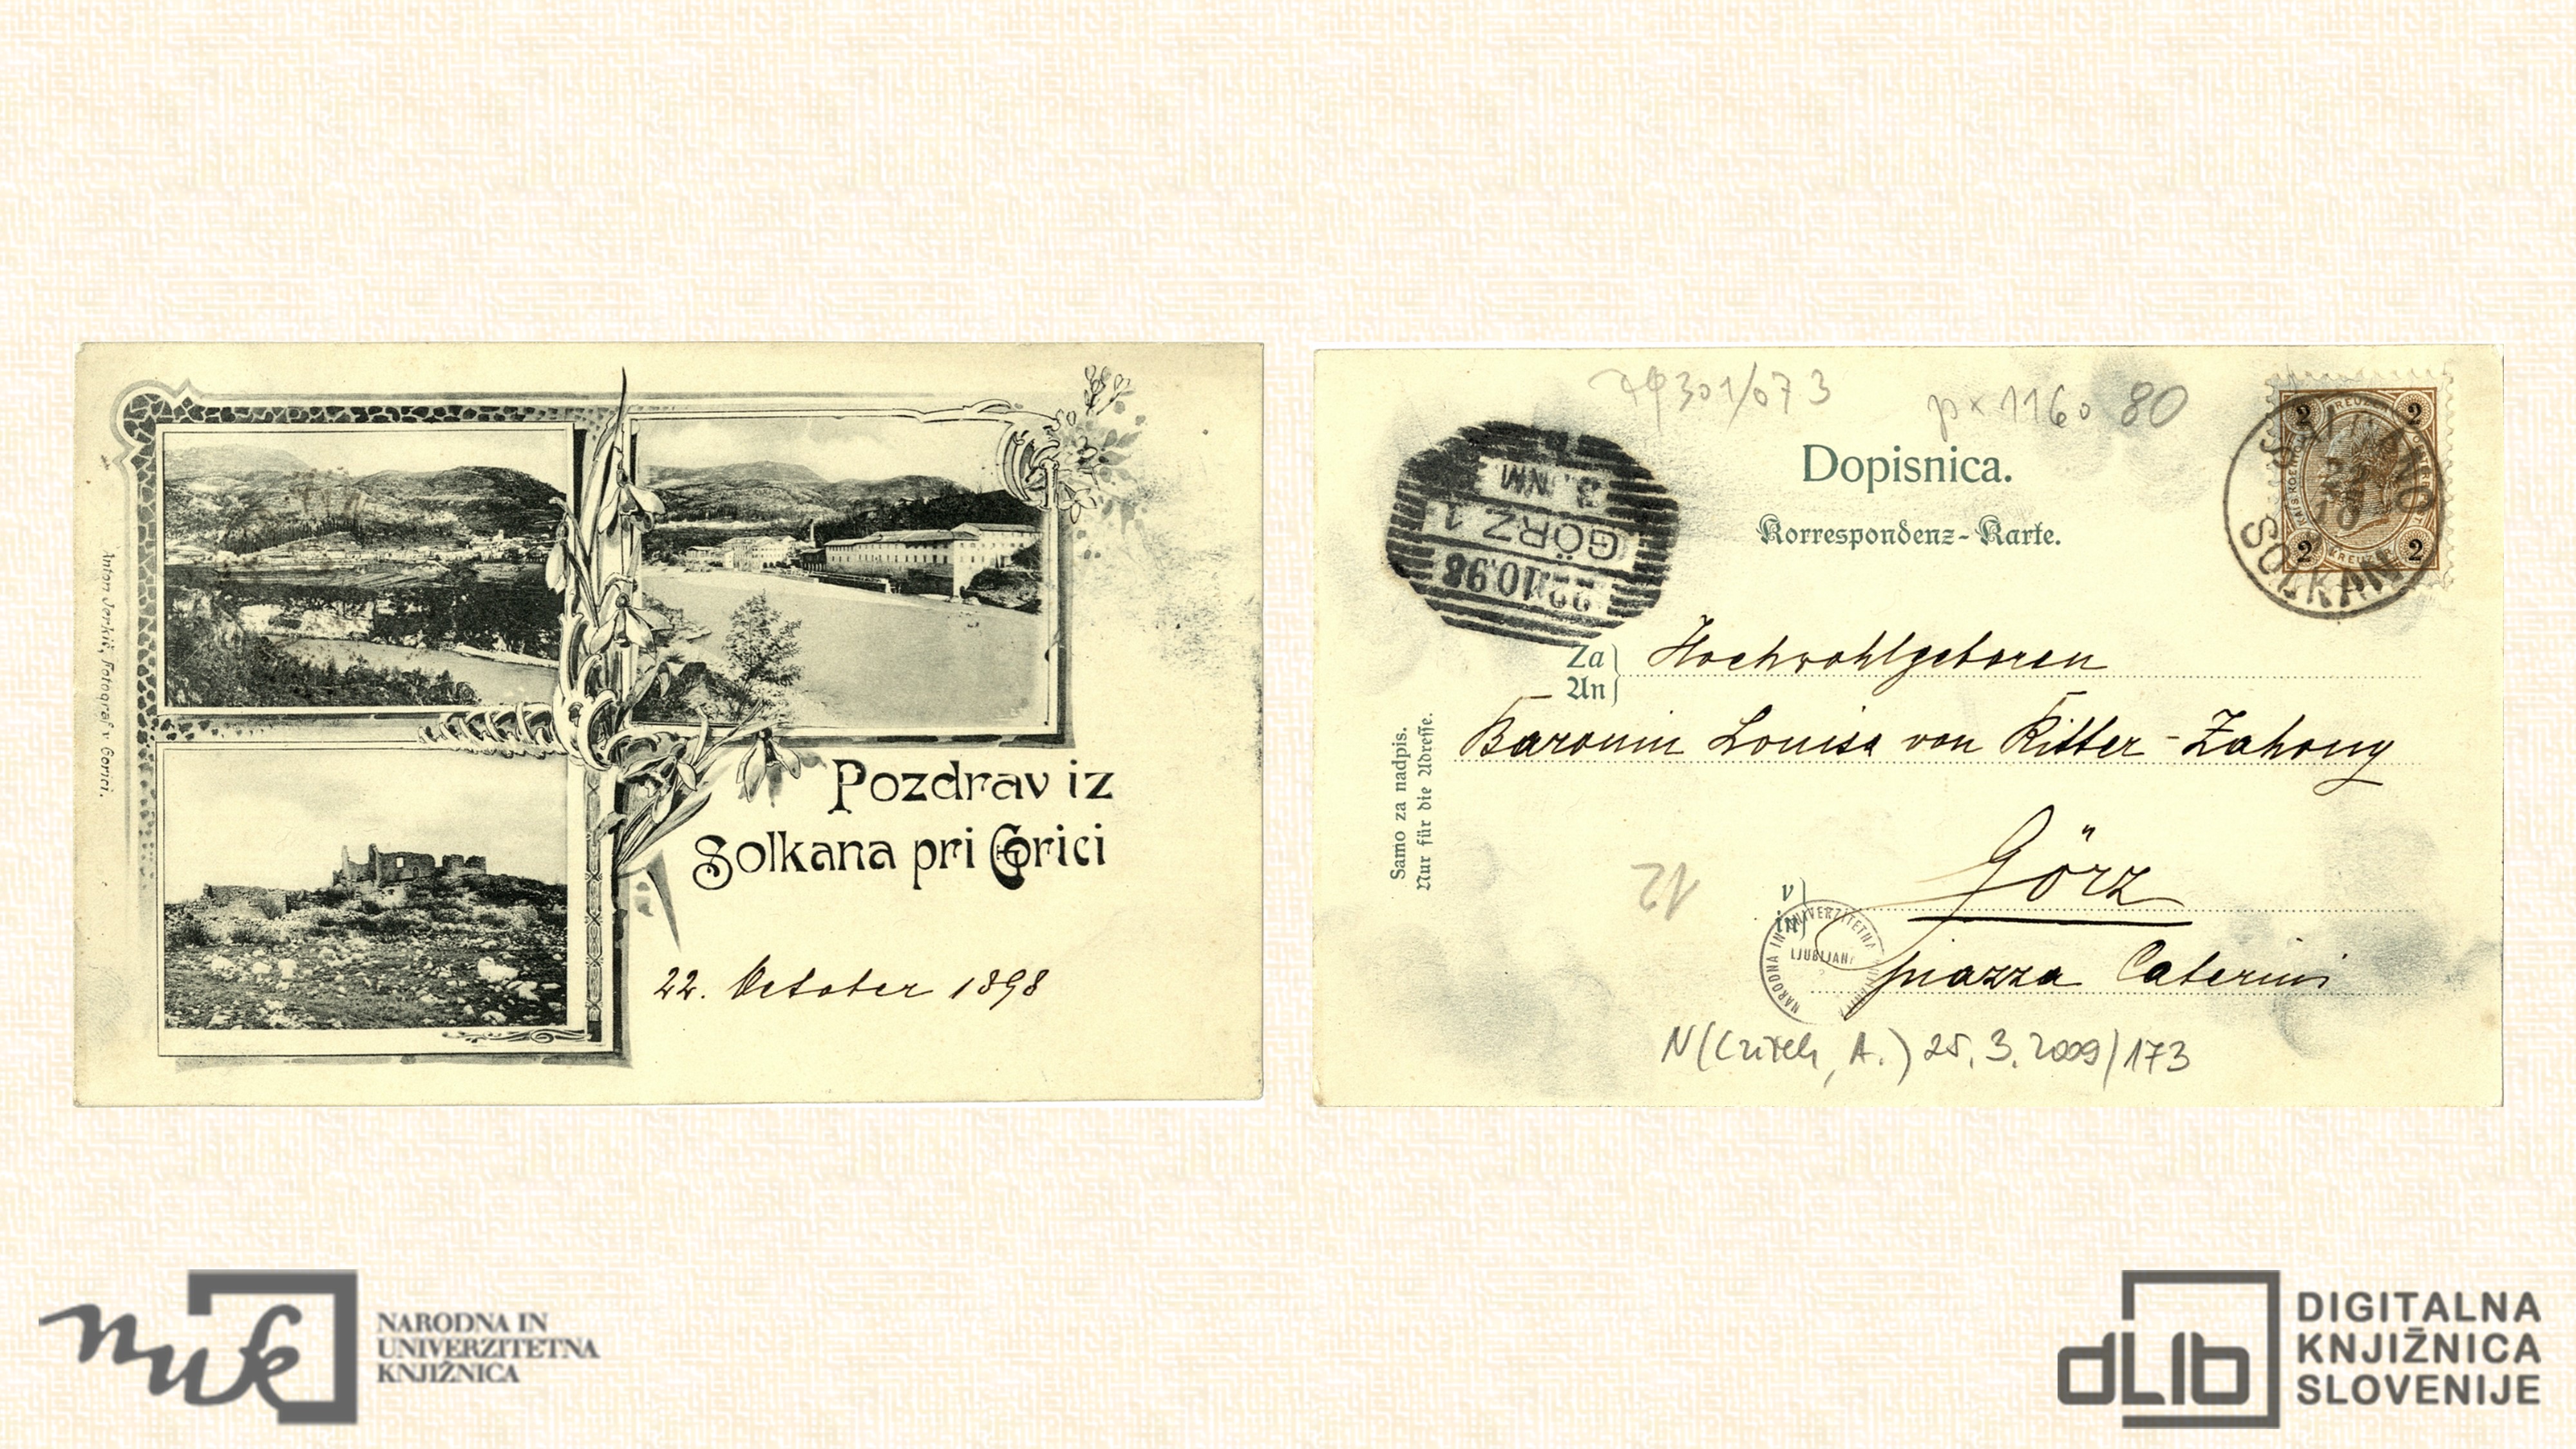 Anton Jerkič, fotograf v Gorici.
Pozdrav iz
Solkana pri Gorici
22. October 1898
301/073
px 1160 80
Dopisnica.
Korrespondenz-Karte.
22.10.98
GÖRZ 1
3. NM
2 2
KREUZER
2 2
SALCANO
22
10
SOLKAN
Za
An
Hochwohlgeboren
Baronin Louisa von Ritter-Zahony
Samo za nadpis.
Nur für die Adresse.
v
in
Görz
piazza Caterini
NARODNA IN UNIVERZITETNA
LJUBLJANA
21
N (Czitek, A.) 25.3.2009/173
nuk
NARODNA IN
UNIVERZITETNA
KNJIŽNICA
dLib
DIGITALNA
KNJIŽNICA
SLOVENIJE